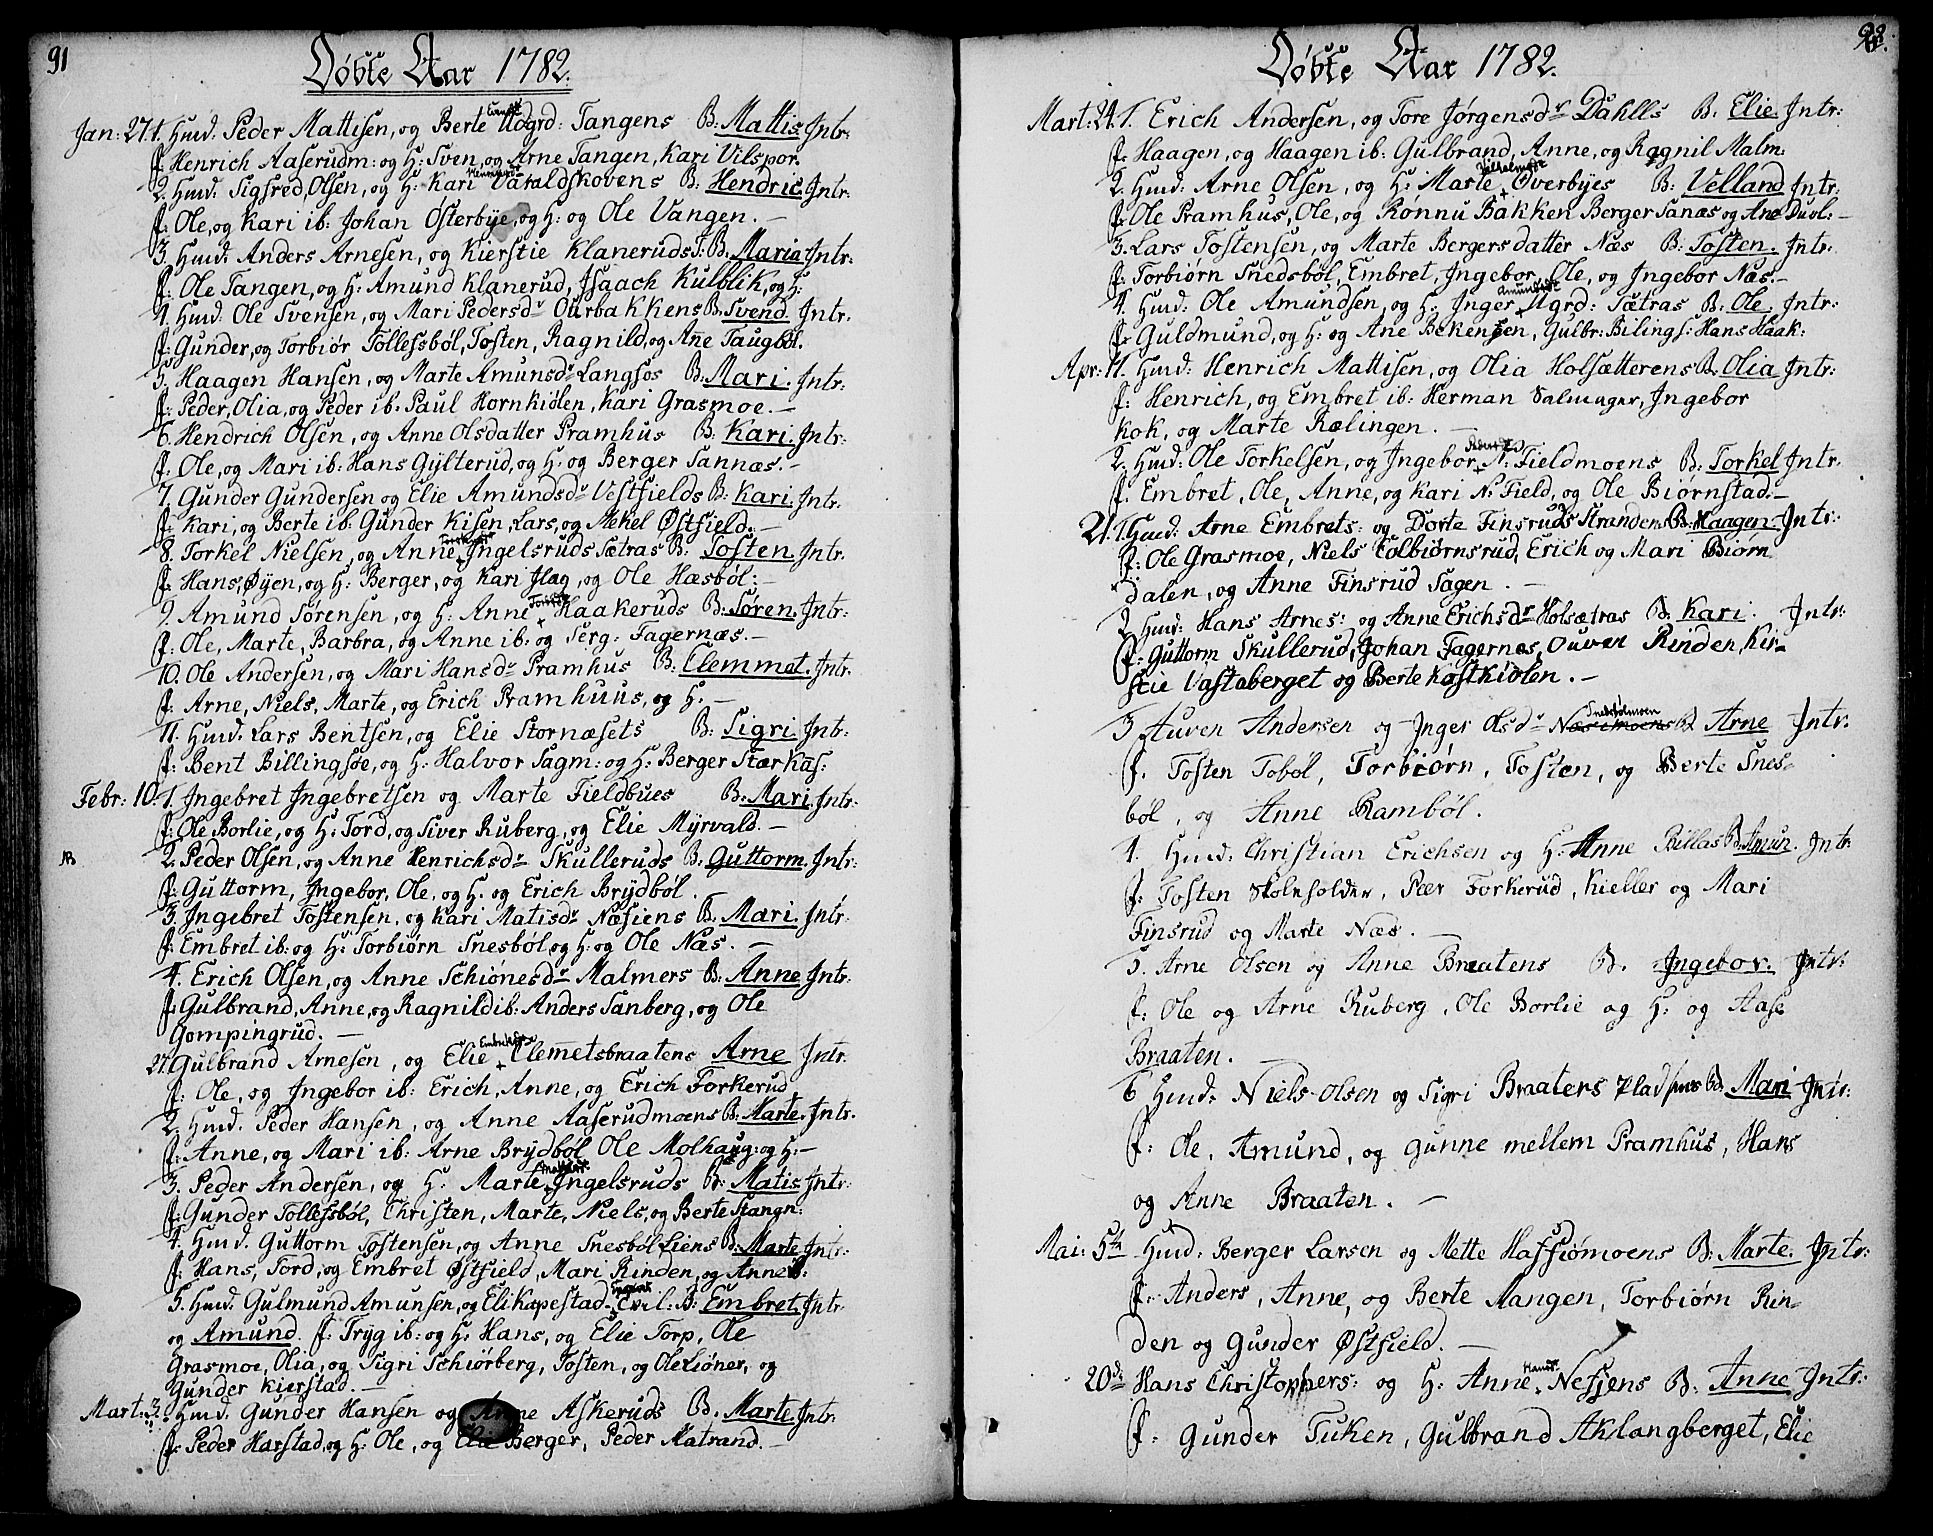 91
Döbte Aar 1782.
Jan: 27 1. Hmd. Peder Mattisen, og Berte Udgrd: Tangens B: Mattis Intr:
f: Henrich Aaserudm: og H: Sven, og Arne Tangen, Kari Vilspor.
2. Hmd: Sigfred Olsen, og H: Kari Varaldskovens B: Hendric Intr:
f: Ole, og Kari ib: Johan Østerbye, og H: og Ole Vangen. —
3. Hmd: Anders Arnesen, og Kierstie Klaneruds S: B. Maria Intr:
f: Ole Tangen, og H: Amund Klanerud, Isaach Kulblik, og H:
4. Hmd: Ole Svensen, og Mari Pedersdr Ourbakkens B: Svend. Intr.
f: Gunder, og Torbiør Tollefsböl, Tosten, Ragnild, og Ane Taugböl.
5. Haagen Hansen, og Marte Amunsdr Langsös B: Mari. Intr:
f: Peder, Olia, og Peder ib. Paul Hornkiölen, Kari Grasmoe. —
6. Hendrich Olsen, og Anne Olsdatter Pramhus B: Kari. Intr:
f: Ole, og Mari ib: Hans Gylterud, og H: og Berger Sannæs. —
7. Gunder Gundersen og Elie Amundsdr Vestfields B: Kari. Intr:
f: Kari, og Berte ib: Gunder Kisen, Lars, og Mekel Østfield. —
8. Torkel Nielsen, og Anne Ingelsruds Sætras B: Tosten. Intr.
f: Hans, Øyen, og H: Berger, og Kari Ilag, og Ole Hæsböl: —
9. Amund Sörensen, og H: Anne Haakeruds B: Sören. Intr:
f: Ole, Marte, Barbra, og Anne ib: og Serg: Fagernæs. —
10. Ole Andersen, og Mari Hansdr Pramhus B: Clemmet. Intr:
f: Arne, Niels, Marte, og Erich Pramhuus, og H. —
11. Hmd. Lars Bentsen, og Elie Stornæsets B: Sigri. Intr:
f: Bent Billingsöe, og H: Halvor Sagm: og H: Berger Stærkas:
Febr: 10. 1. Ingebret Ingebretsen og Marte Fieldbues B: Mari. Intr.
f: Ole Borlie, og H: Tord, og Siver Ruberg, og Elie Myrvald. —
NB 2. Peder Olsen, og Anne Henrichsdr Skulleruds B: Guttorm. Intr:
f: Guttorm, Ingebor, Ole, og H. og Erich Brydböl.
3. Ingebret Tostensen, og Kari Matisdr Næsiens B: Mari. Intr.
f: Embret ib: og H: Torbiörn Snesböl, og H: og Ole Næs. —
4. Erich Olsen, og Anne Schiönesdr Malmers B: Anne Intr:
f: Gulbrand, Anne, og Ragnild ib: Anders Sanberg, og Ole
Gompingrud. —
24. 1. Gulbrand Arnesen, og Elie Clemetsbraatens Arne Intr.
f: Ole, og Ingebor ib: Erich, Anne, og Erich Forkerud
2. Hmd. Peder Hansen, og Anne Aaserudmoens B: Marte. Intr.
f: Anne, og Mari ib: Arne Brydböl Ole Molhaug: og H: —
3. Peder Andersen, og H: Marte Ingelsruds B: Matis Intr:
f: Gunder Tollefsböl, Christen, Marte, Niels, og Berte Stangn:
4. Hmd. Guttorm Tostensen, og Anne Snesböl Liens B: Marte Intr:
f: Hans, Tord, og Embret Østfield, Mari Rinden, og Anne ib:
5. Hmd. Gulmund Amunsen, og Eli Kapestad B: Embret. Intr.
og Amund. f: Tryg ib: og H: Hans, og Elie Torp, Ole
Grasmoe, Olia, og Sigri Schiörberg, Tosten, og Ole Liöner, og
Gunder Kierstad. —
Mart: 3. Hmd. Gunder Hansen og Anne Askeruds B. Marte. Intr.
f: Peder Harstad, og H: Ole, og Elie Berger, Peder Matrand. —
Döbte Aar 1782.
Mart: 24. 1. Erich Andersen, og Tore Jörgensdr Dahlls B. Elie. Intr:
f: Haagen, og Haagen ib: Gulbrand, Anne, og Ragnil Malm:
2. Hmd: Arne Olsen, og H: Marte Overbyes B: Velland Intr:
f: Ole Pramhus, Ole, og Rönnu Bakken Berger Sanæs og Ane Duol: —
3. Lars Tostensen, og Marte Bergers datter Næs B: Tosten. Intr.
f: Torbiörn Snedsböl, Embret, Ingebor, Ole, og Ingebor Næs. —
4. Hmd: Ole Amundsen, og H: Inger Ugrd: Sætras B: Ole. Intr:
f: Guldmund, og H: og Ane Bekensen, Gulbr: Bilings: Hans Haak:
Apr: 1. Hmd: Henrich Mattisen, og Olia Holsætterens B: Olia Intr:
f: Henrich, og Embret ib: Herman Salmager, Ingebor
Kok, og Marte Rælingen. —
2. Hmd: Ole Torkelsen, og Ingebor N: Fieldmoens B: Torkel Intr.
f. Embret, Ole, Anne, og Kari N: Field, og Ole Biörnstad: —
21. 1. Hmd: Arne Embrets: og Dorte Finsruds Stranden B: Haagen Intr:
f: Ole Grasmoe, Niels Colbiörnsrud, Erich og Mari Biörn
dalen, og Anne Finsrud Sagen. —
2 Hmd: Hans Arnes: og Anne Erichsdr Holsætras B. Kari. Intr:
f: Guttorm Skullerud, Johan Fagernæs, Ouven Rinden, Kir-
stie Vastaberget og Berte Kostkiölen. —
3 Auven Andersen og Inger Olsdr Snesbölmoen B Arne Intr.
f. Tosten Toböl, Torbiörn, Tosten, og Berte Snes-
böl, og Anne Ramböl.
4. Hmd: Christian Erichsen og H: Anne Billas B. Amun. Intr
f: Tosten Skoleholder, Pær Forkerud, Kieller og Mari
Finsrud og Marte Næs. —
5. Arne Olsen og Anne Braatens B. Ingebor. Intr:
f: Ole og Arne Ruberg, Ole Borlie og H: og Aase
Braaten. —
6 Hmd: Niels Olsen og Sigri Braatens Pladsens B. Mari Intr:
f: Ole, Amund, og Gunne mellem Pramhus, Hans
og Anne Braaten. —
Mai: 5te Hmd: Berger Larsen og Mette Hafsiömoens B: Marte. Intr:
f: Anders, Anne, og Berte Mangen, Torbiörn Rin-
den og Gunder Østfield. —
20de Hans Christophers: og H: Anne Nesjens B: Anne Intr:
f: Gunder Tuken, Gulbrand Aklangberget, Elie